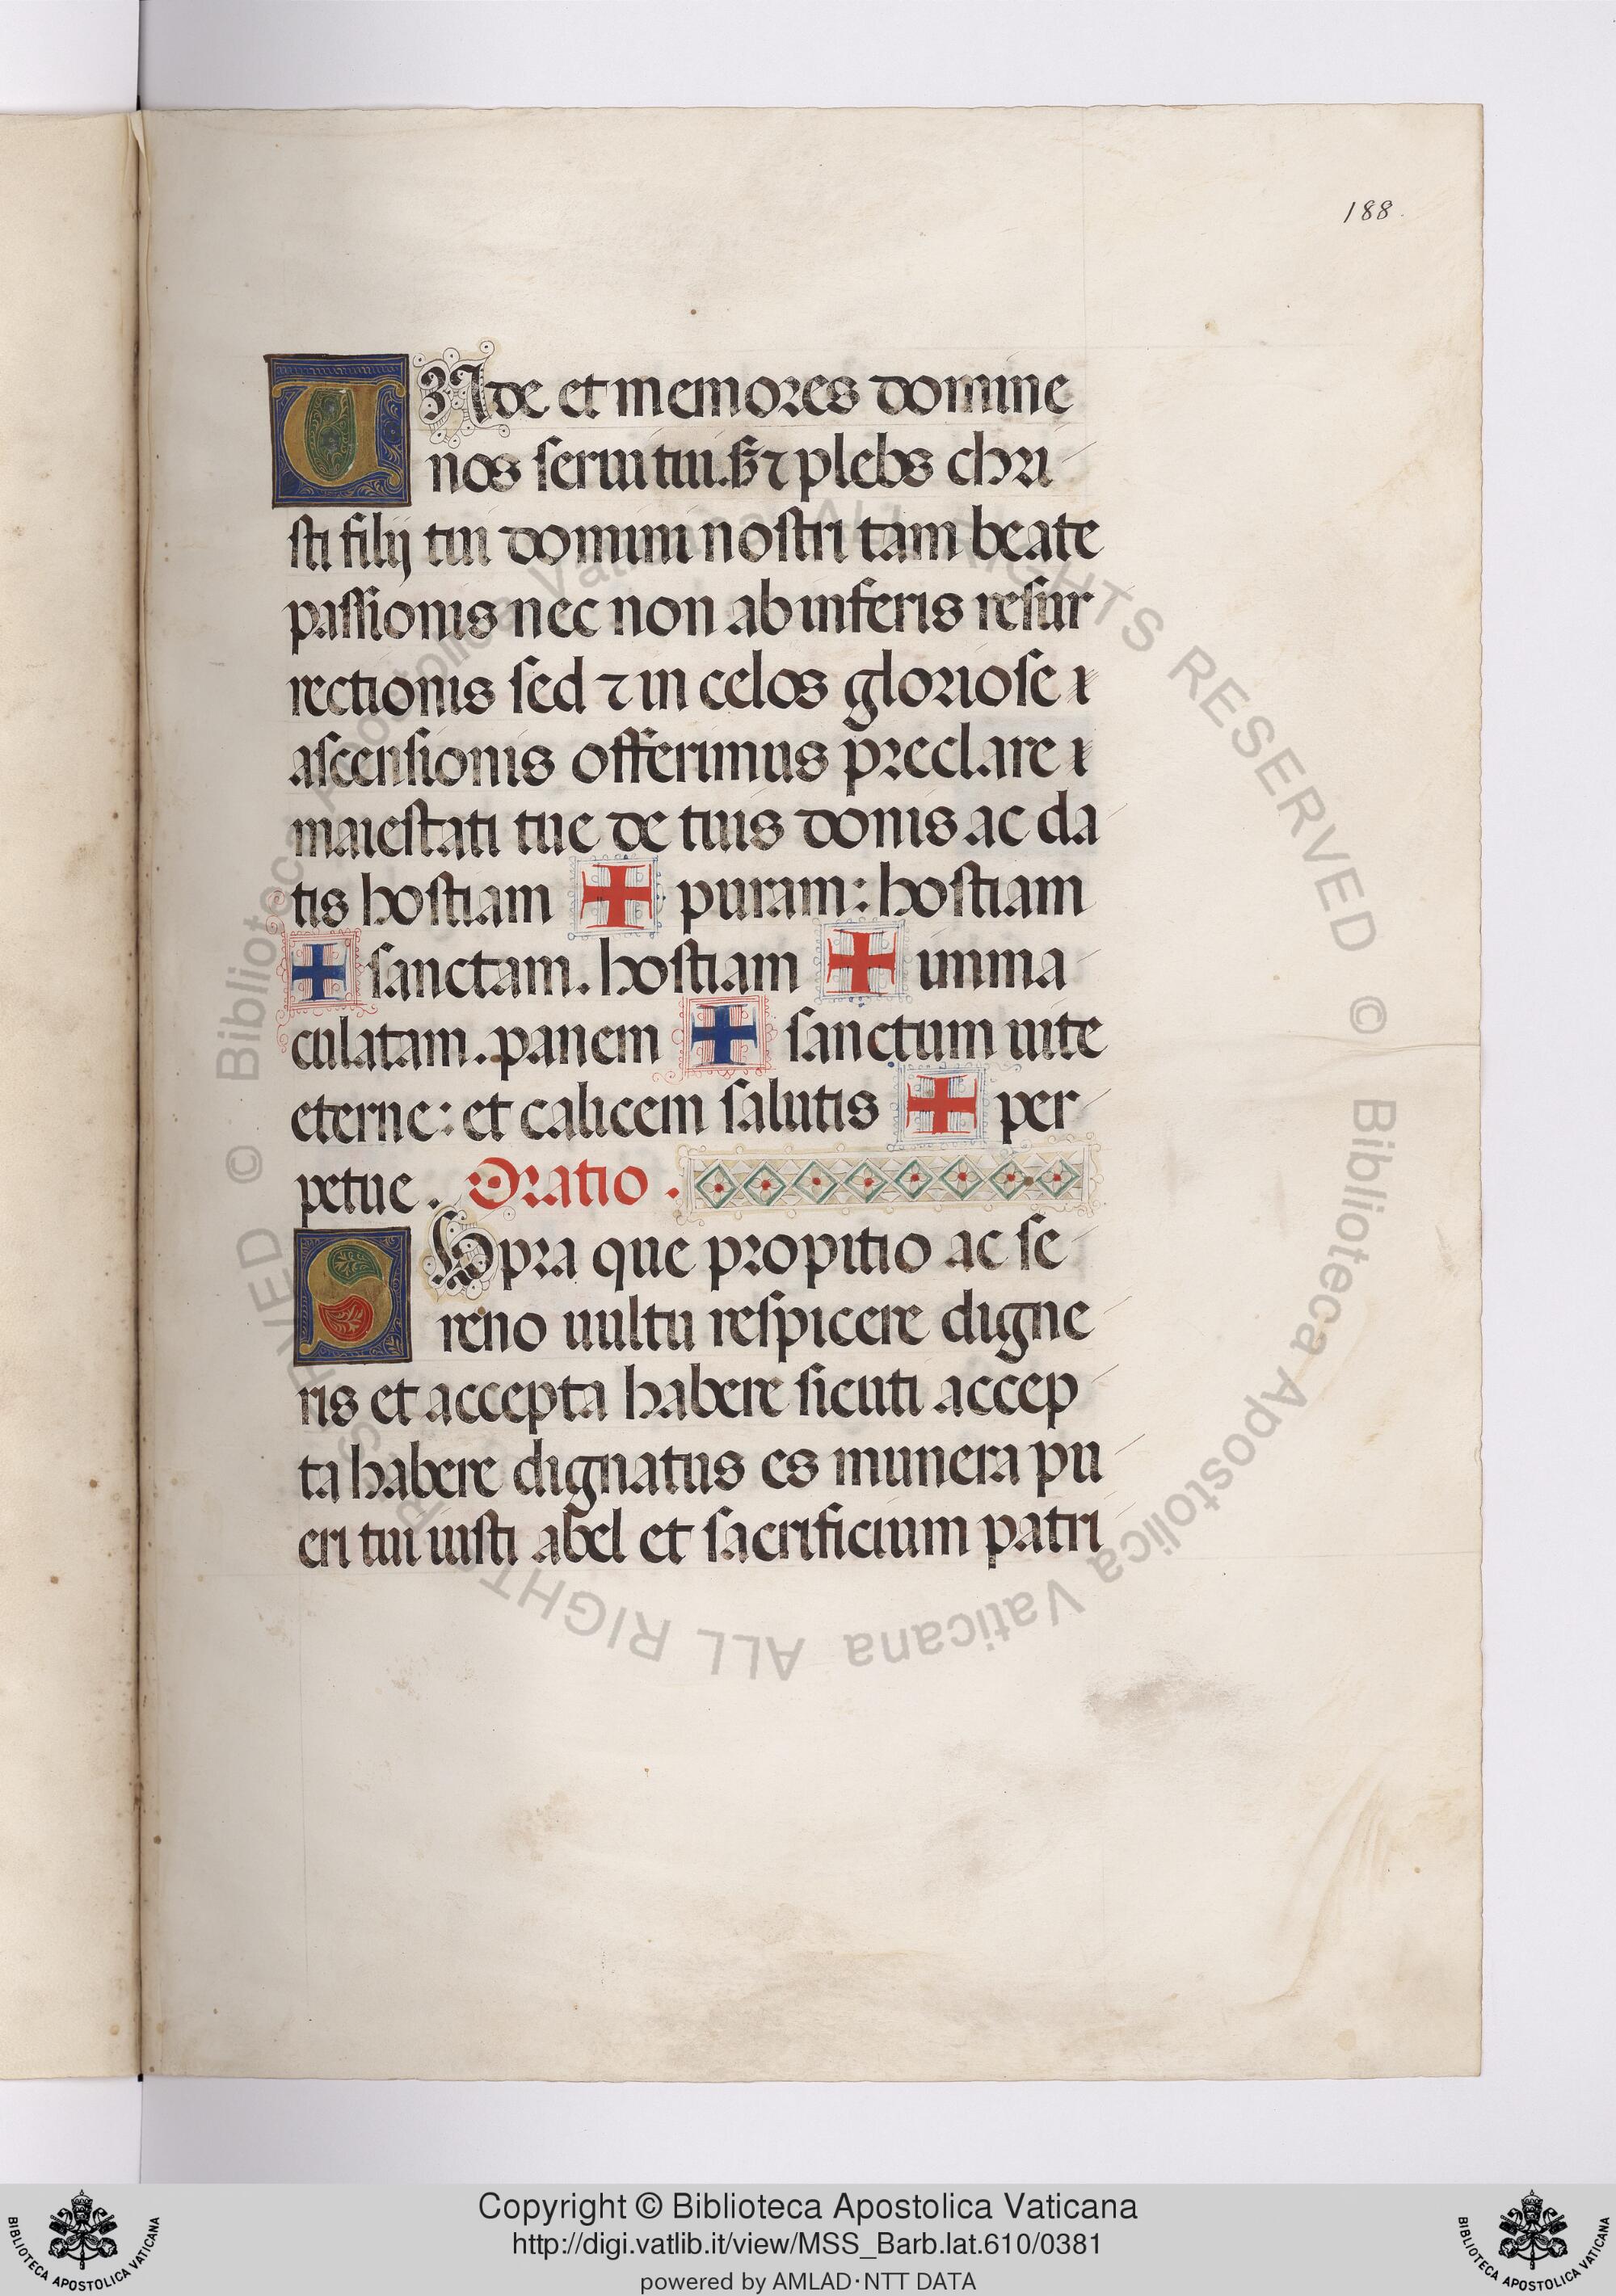 188.
UNde et memores domine
nos serui tui. sz ⁊ plebs chri
sti filij tui domini nostri tam beate
passionis nec non ab inferis resur
rectionis sed ⁊ in celos gloriose
ascensionis offerimus preclare
maiestati tue de tuis donis ac da
tis hostiam ✠ puram: hostiam
✠ sanctam. hostiam ✠ imma
culatam. panem ✠ sanctum uite
eterne: et calicem salutis ✠ per
petue. Oratio.
SUpra que propitio ac se
reno uultu respicere digne
ris et accepta habere sicuti accep
ta habere dignatus es munera pu
eri tui iusti abel et sacrificium patri
© Biblioteca Apostolica Vaticana ALL RIGHTS RESERVED © Biblioteca Apostolica Vaticana ALL RIGHTS RESERVED
Copyright © Biblioteca Apostolica Vaticana
http://digi.vatlib.it/view/MSS_Barb.lat.610/0381
powered by AMLAD·NTT DATA
BIBLIOTECA APOSTOLICA VATICANA
BIBLIOTECA APOSTOLICA VATICANA